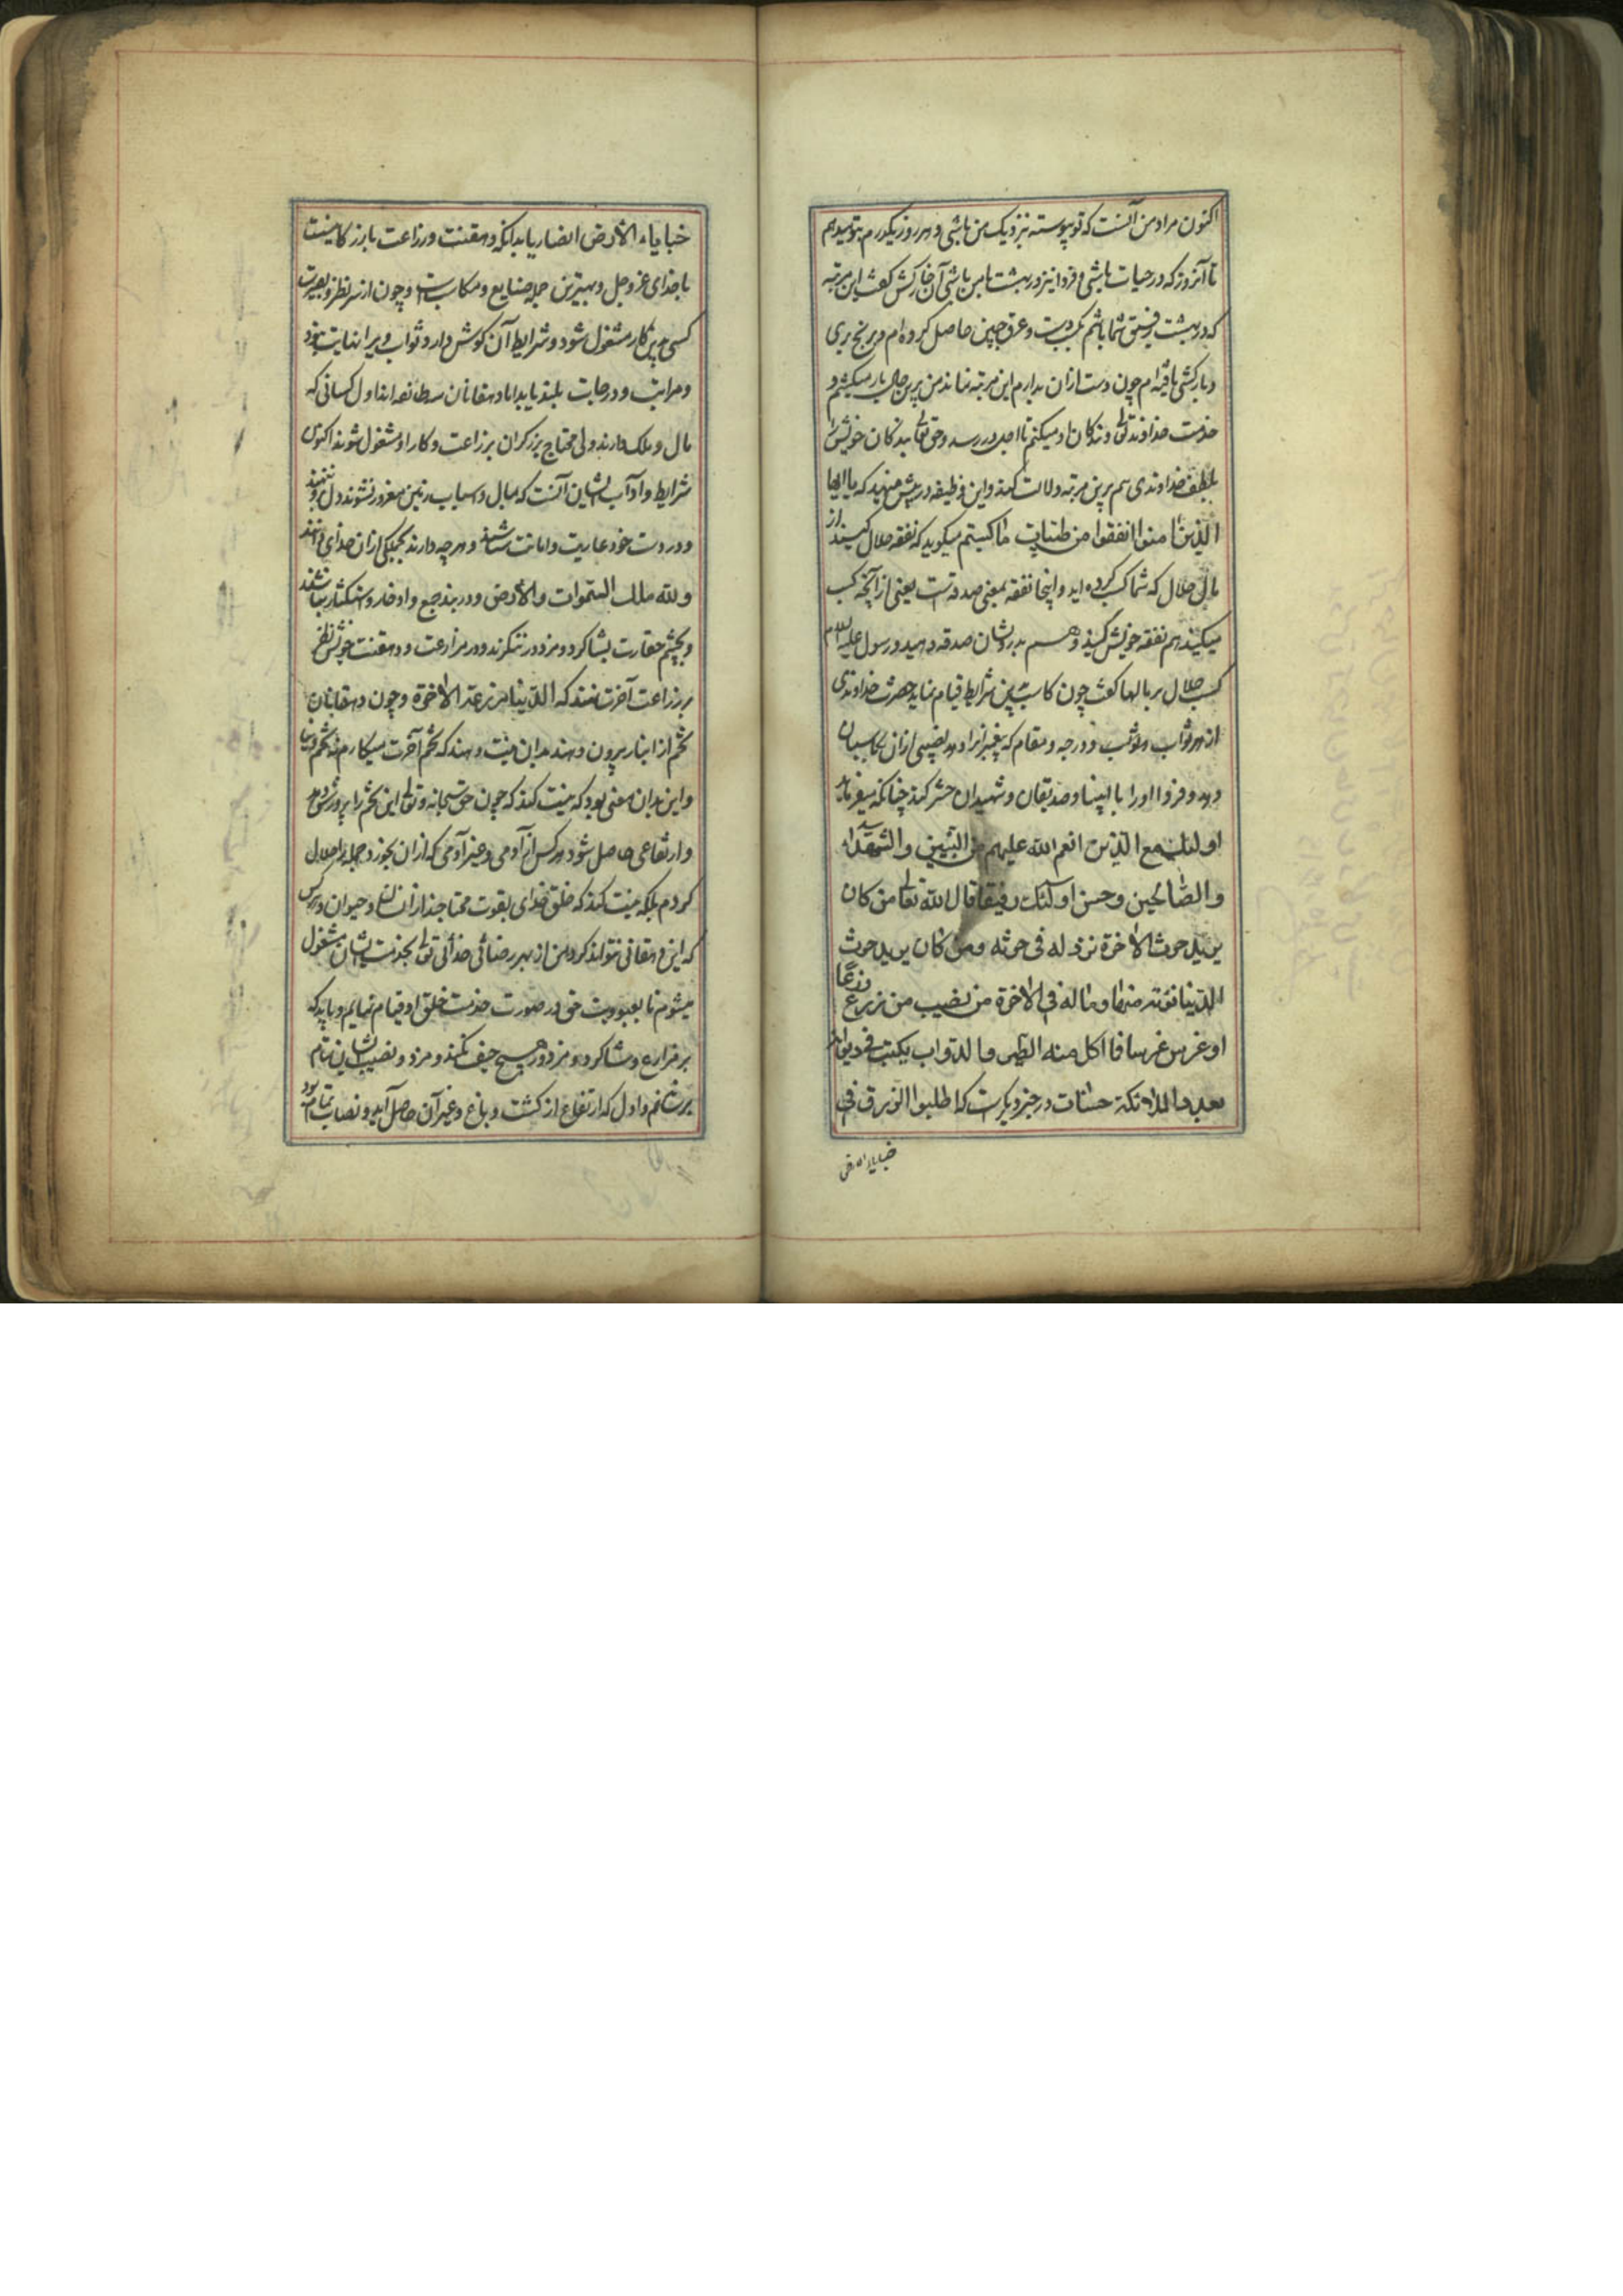 اکنون مراد من آنست که تو پیوسته نزدیک من باشی و هر روز یکدرم بتو میدهم
تا آنروز که در حیات باشی و فردا نیز در بهشت با من باشی آن خارکش گفت این مرتبه
که در بهشت رفیق شما باشم بکد دست و عرق جبین حاصل کرده ام و برنج بری
و بارکشی یافته ام چون دست ازان بدارم این مرتبه نماند من برین حال بار میکشم و
خدمت خداوند تعالی و بندکان او میکنم تا اجل در رسد و حق تعالی بندکان خویش را
بلطف خداوندی هم برین مرتبه دلالت کند و این وظیفه در پیش مینهد که یا ایها
الذین امنوا انفقوا من طیبات ما کسبتم میکوید که نفقه حلال کنید از
مال حلال که شما کسب کرده اید و اینجا نفقه بمعنی صدقه است یعنی از آنچه کسب
میکنید هم نفقه خویش کنید و هم بدرویشان صدقه دهید و رسول علیه السلام
کسب حلال بر بالها کفت چون کاسب بدین شرایط قیام نماید حضرت خداوندی
از هر ثواب و درجه و مقام که پیغمبرانرا دهد نصیبی ازان بکاسبان
دهد و فردا اورا با انبیا و صدیقان و شهیدان حشر کند چنانکه میفرماید
اولئک مع الذین انعم الله علیهم من النبیین والشهداء
والصالحین وحسن اولئک رفیقا قال الله تعالی من کان
یرید حرث الاخرة نزد له فی حرثه ومن کان یرید حرث
الدنیا نؤته منها وما له فی الاخرة من نصیب من زرع زرعا
او غرس غرسا فما اکل منه الطیر والدواب یکتب فی دیوانه
بعد الملائکة حسنات در خبر دیکرست که اطلبوا الرزق فی
خبایاء الارض
خبایاء الارض ایضا بباید دانکه دهقنت و زراعت بازرکانیست
با خدای عز و جل و بهترین جمله صنایع و مکاسب است و چون از سر نظر و بصیرت
کسی بدین کار مشغول شود و شرایط آن کوش دارد ثواب ویرا نهایت نبود
و مراتب و درجات بلند یابد اما دهقانان سه طائفه اند اول کسانی که
مال و ملک دارند ولی محتاج برزکران بزراعت و کار او مشغول شوند اکنون
شرایط و آداب ایشان آنست که بمال و اسباب زمین مغرور نشوند و دل برو ننهند
و در دست خود عاریت و امانت شناسند و هرچه دارند بجملکی ازان خدای دانند
ولله ملک السموات والارض و در بند جمع و ادخار و استکثار نباشند
و بچشم حقارت بشاکرد و مزدور ننکرند و در مزارعت و دهقنت خویش نظر
بر زراعت آخرت نهند که الدنیا مزرعة الاخرة و چون دهقانان
تخم از انبار بیرون دهند بدان نیت دهند که تخم آخرت میکارم نه تخم دنیا
و این بدان معنی بود که نیت کند که چون حق سبحانه و تعالی این تخم را پرورش دهد
و ارتفاعی حاصل شود هر کس از آدمی و غیر آدمی که ازان بخورد جمله را حلال
کردم بلکه نیت کند که خلق خدای بقوت محتاجند از انسان و حیوان و هر کس
که این دهقانی نتواند کرد من از بهر رضای خدای تعالی بخدمت ایشان مشغول
میشوم تا بعبودیت حق در صورت خدمت خلق او قیام نمایم و باید که
بر مزارع و شاکرد و مزدور هیچ حیف نکند و مزد و نصیب ایشان تمام
برساند و اول که ارتفاع از کشت و باغ و غیر آن حاصل آید و نصاب تمام بود